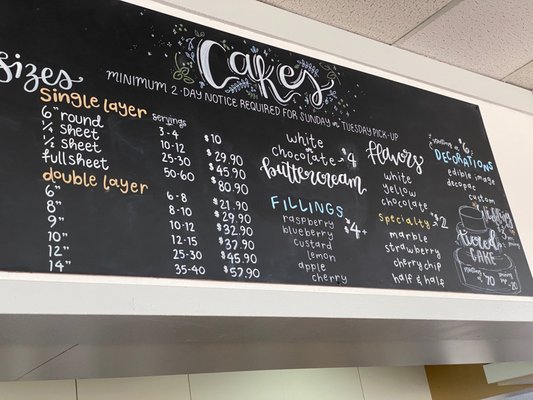 Cakes
MINIMUM 2-DAY NOTICE REQUIRED FOR SUNDAY or TUESDAY PICK-UP
Sizes
single layer servings
6" round 3-4 $10
1/4 sheet 10-12 $29.90
1/2 sheet 25-30 $45.90
full sheet 50-60 $80.90
double layer
6" 6-8 $21.90
8" 8-10 $29.90
9" 10-12 $32.90
10" 12-15 $37.90
12" 25-30 $45.90
14" 35-40 $57.90
white
chocolate + $4
buttercream
FILLINGS + $4
raspberry
blueberry
custard
lemon
apple
cherry
flavors
white
yellow
chocolate
specialty + $2
marble
strawberry
cherry chip
half & half
starting at $6
DECORATIONS
edible image
decopac
custom
tiered
CAKE
starting at